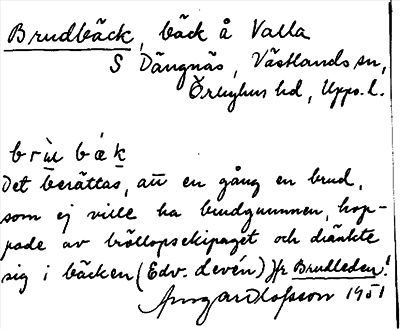 Brudbäck, bäck å Valla
S Dängnäs, Västlands sn,
Örbyhus hd, Upps. l.
brù bæk
Det berättas, att en gång en brud,
som ej ville ha brudgummen, hop-
pade av bröllopsekipaget och dränkte
sig i bäcken (Edv. Levén) Jfr Brudleden!
1951